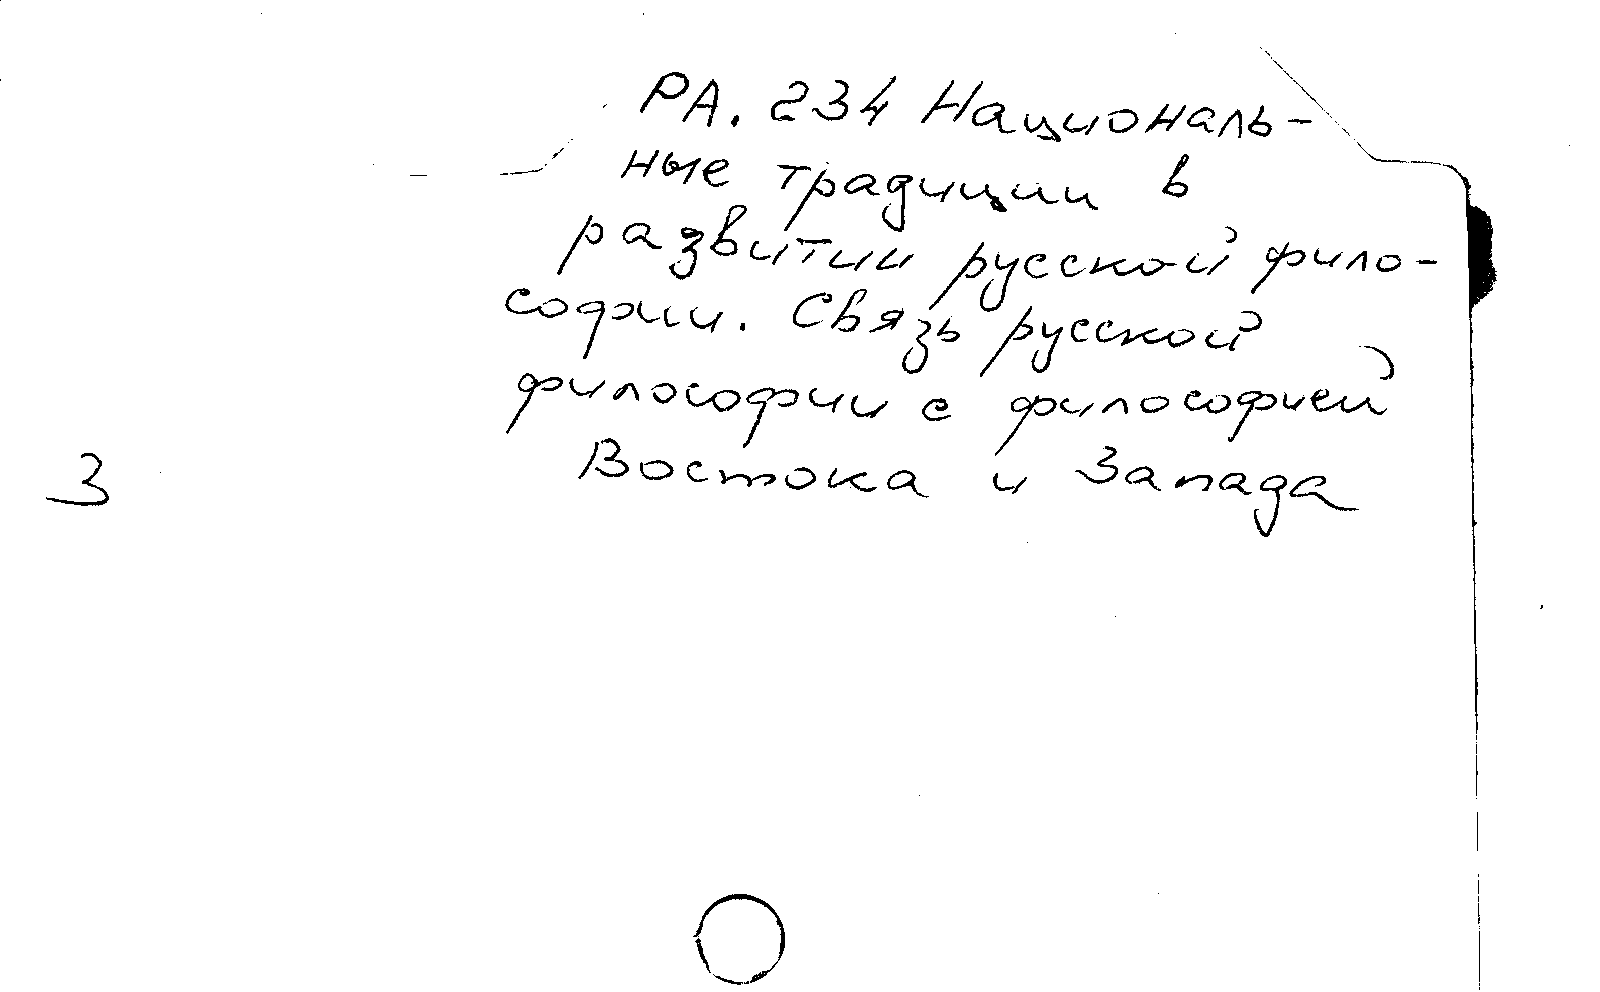 РА. 234 Националь-
ные традиции в
развитии русской фило-
софии. Связь русской
философии с философией
Востока и Запада
3